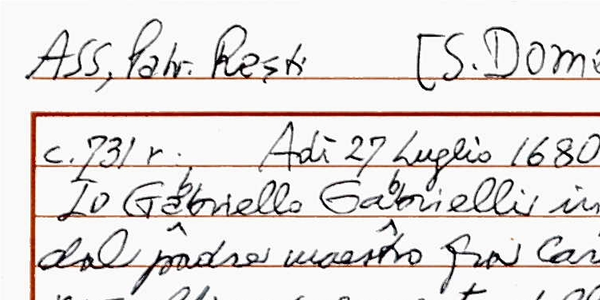 ASS, Patr. Resti [S. Dome
c. 731 r. Adì 27 Luglio 1680
Io Gabriello Gabrielli in
dal padre maestro fra Car